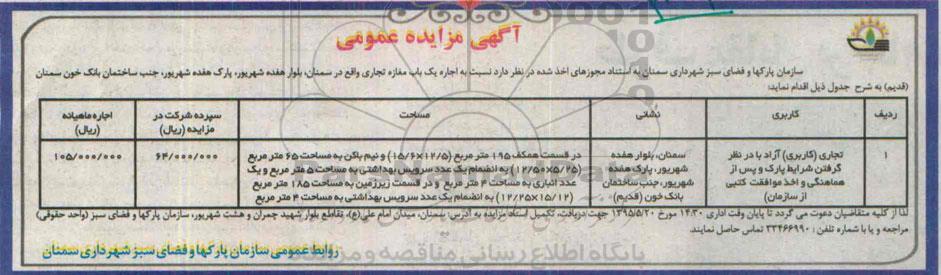 آگهی مزایده عمومی
سازمان پارکها و فضای سبز شهرداری سمنان به استناد مجوزهای اخذ شده در نظر دارد نسبت به اجاره یک باب مغازه تجاری واقع در سمنان، بلوار هفده شهریور، پارک هفده شهریور، جنب ساختمان بانک خون سمنان
(قدیم) به شرح جدول ذیل اقدام نماید:
ردیف کاربری نشانی مساحت سپرده شرکت در مزایده (ریال) اجاره ماهیانه (ریال)
۱ تجاری (کاربری) آزاد با در نظر گرفتن شرایط پارک و پس از هماهنگی و اخذ موافقت کتبی از سازمان) سمنان، بلوار هفده شهریور، پارک هفده شهریور، جنب ساختمان بانک خون (قدیم) در قسمت همکف ۱۹۵ متر مربع (۱۵/۶×۱۲/۵) و نیم بالکن به مساحت ۶۵ متر مربع (۱۲/۵۰×۵/۲۵) به انضمام یک عدد سرویس بهداشتی به مساحت ۵ متر مربع و یک عدد انباری به مساحت ۴ متر مربع و در قسمت زیرزمین به مساحت ۱۸۵ متر مربع (۱۲/۲۵×۱۵/۱۲) به انضمام یک عدد سرویس بهداشتی به مساحت ۴ متر مربع ۶۴/۰۰۰/۰۰۰ ۱۰۵/۰۰۰/۰۰۰
لذا از کلیه متقاضیان دعوت می گردد تا پایان وقت اداری ۱۴:۳۰ مورخ ۱۳۹۵/۵/۲۰ جهت دریافت، تکمیل اسناد مزایده به آدرس: سمنان، میدان امام علی(ع)، تقاطع بلوار شهید چمران و هشت شهریور، سازمان پارکها و فضای سبز (واحد حقوقی)
مراجعه و یا با شماره تلفن: ۳۳۴۶۶۹۹۰ تماس حاصل نمایند.
روابط عمومی سازمان پارکها و فضای سبز شهرداری سمنان
پایگاه اطلاع رسانی مناقصه و مزایده